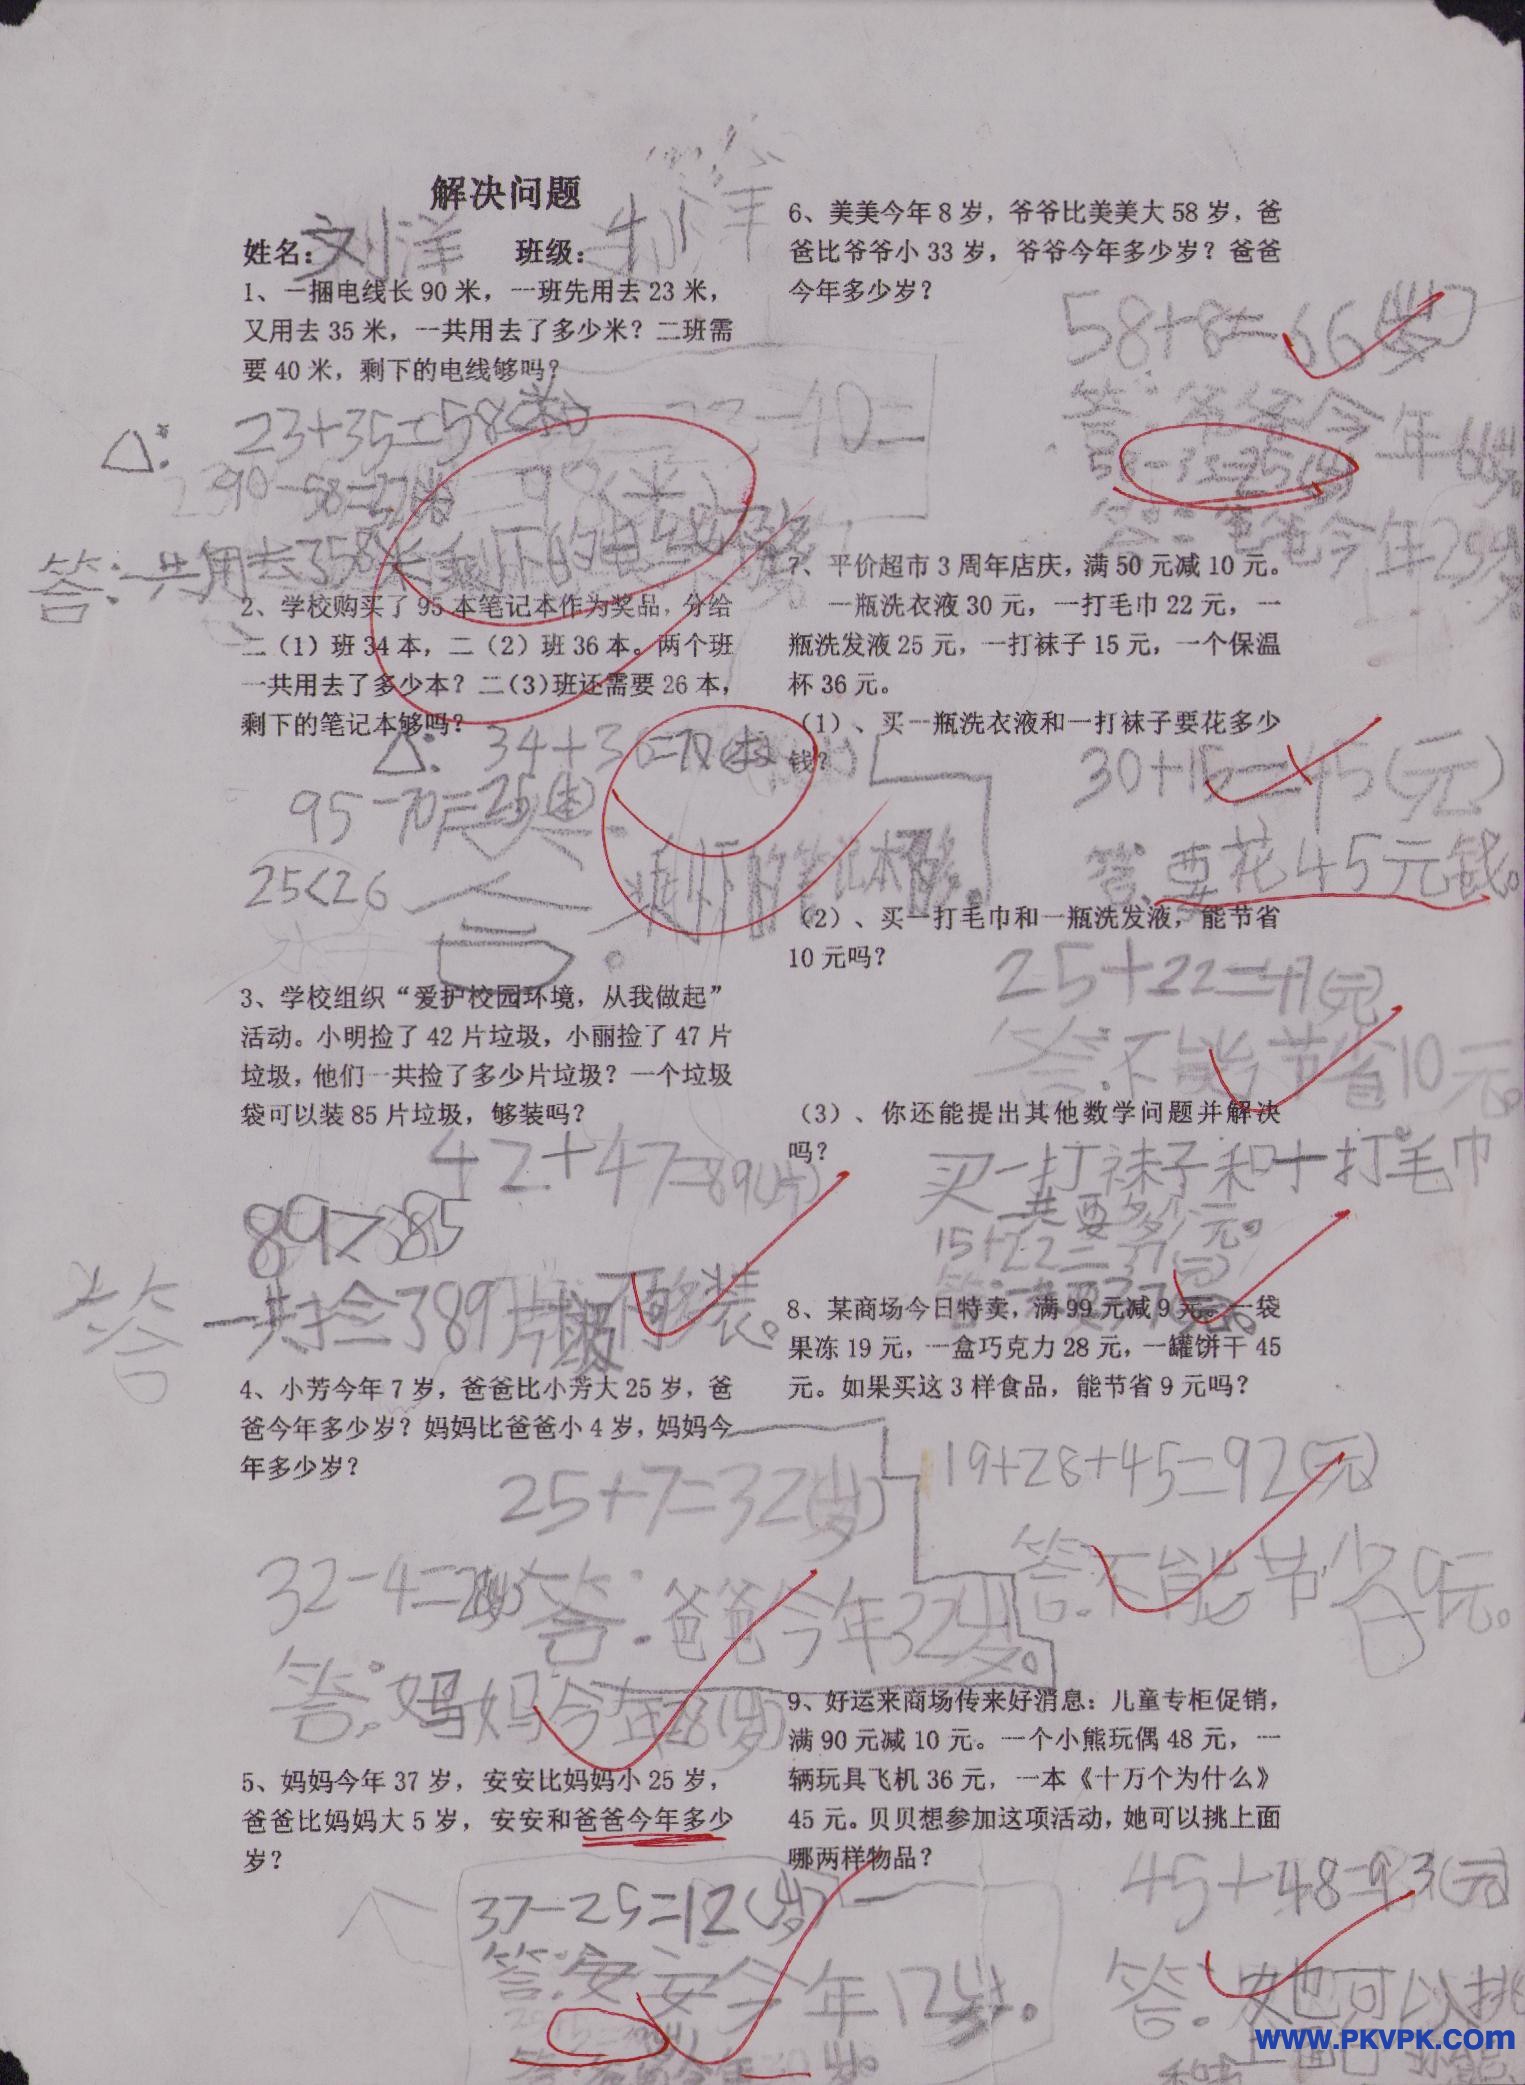 解决问题
姓名：刘洋 班级：
1、一捆电线长90米，一班先用去23米，
又用去35米，一共用去了多少米？二班需
要40米，剩下的电线够吗？
23+35=58(米)
90-58=32(米)
答：一共用去58米 剩下的电线不够
2、学校购买了95本笔记本作为奖品，分给
二（1）班34本，二（2）班36本。两个班
一共用去了多少本？二（3）班还需要26本，
剩下的笔记本够吗？
34+36=70(本)
95-70=25(本)
25<26
答：剩下的笔记本不够。
3、学校组织“爱护校园环境，从我做起”
活动。小明捡了42片垃圾，小丽捡了47片
垃圾，他们一共捡了多少片垃圾？一个垃圾
袋可以装85片垃圾，够装吗？
42+47=89(片)
89>85
答 一共捡了89片垃圾 不够装。
4、小芳今年7岁，爸爸比小芳大25岁，爸
爸今年多少岁？妈妈比爸爸小4岁，妈妈今
年多少岁？
25+7=32(岁)
32-4=28(岁) 答：爸爸今年32岁。
答：妈妈今年28(岁)
5、妈妈今年37岁，安安比妈妈小25岁，
爸爸比妈妈大5岁，安安和爸爸今年多少
岁？
37-25=12(岁)
答：安安今年12岁。
6、美美今年8岁，爷爷比美美大58岁，爸
爸比爷爷小33岁，爷爷今年多少岁？爸爸
今年多少岁？
58+8=66(岁)
答：爷爷今年66岁
58-33=25(岁)
答：爸爸今年25岁
7、平价超市3周年店庆，满50元减10元。
一瓶洗衣液30元，一打毛巾22元，一
瓶洗发液25元，一打袜子15元，一个保温
杯36元。
（1）、买一瓶洗衣液和一打袜子要花多少
钱？
30+15=45(元)
答、要花45元钱。
（2）、买一打毛巾和一瓶洗发液，能节省
10元吗？
25+22=47(元)
答：不能节省10元。
（3）、你还能提出其他数学问题并解决
吗？
买一打袜子和一打毛巾
一共要多少元。
15+22=37(元)
8、某商场今日特卖，满99元减9元。一袋
果冻19元，一盒巧克力28元，一罐饼干45
元。如果买这3样食品，能节省9元吗？
19+28+45=92(元)
答：不能节省9元。
9、好运来商场传来好消息：儿童专柜促销，
满90元减10元。一个小熊玩偶48元，一
辆玩具飞机36元，一本《十万个为什么》
45元。贝贝想参加这项活动，她可以挑上面
哪两样物品？
45+48=93(元)
答：她可以挑
www.PKVPK.com